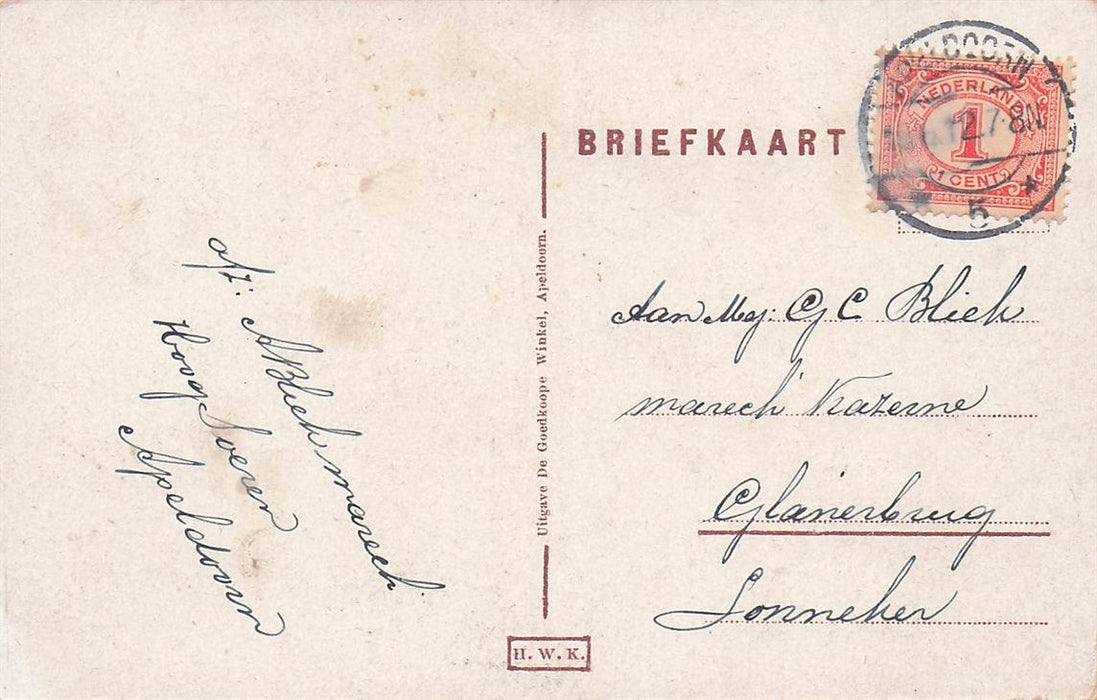 BRIEFKAART
NEDERLAND
1
1 CENT
12.7-8N
5
afz: A Bliek marech.
Hoog Soeren
Apeldoorn
Uitgave De Goedkoope Winkel, Apeldoorn.
Aan Mej: G C Bliek
marech Kazerne
Glanerbrug
Lonneker
H. W. K.